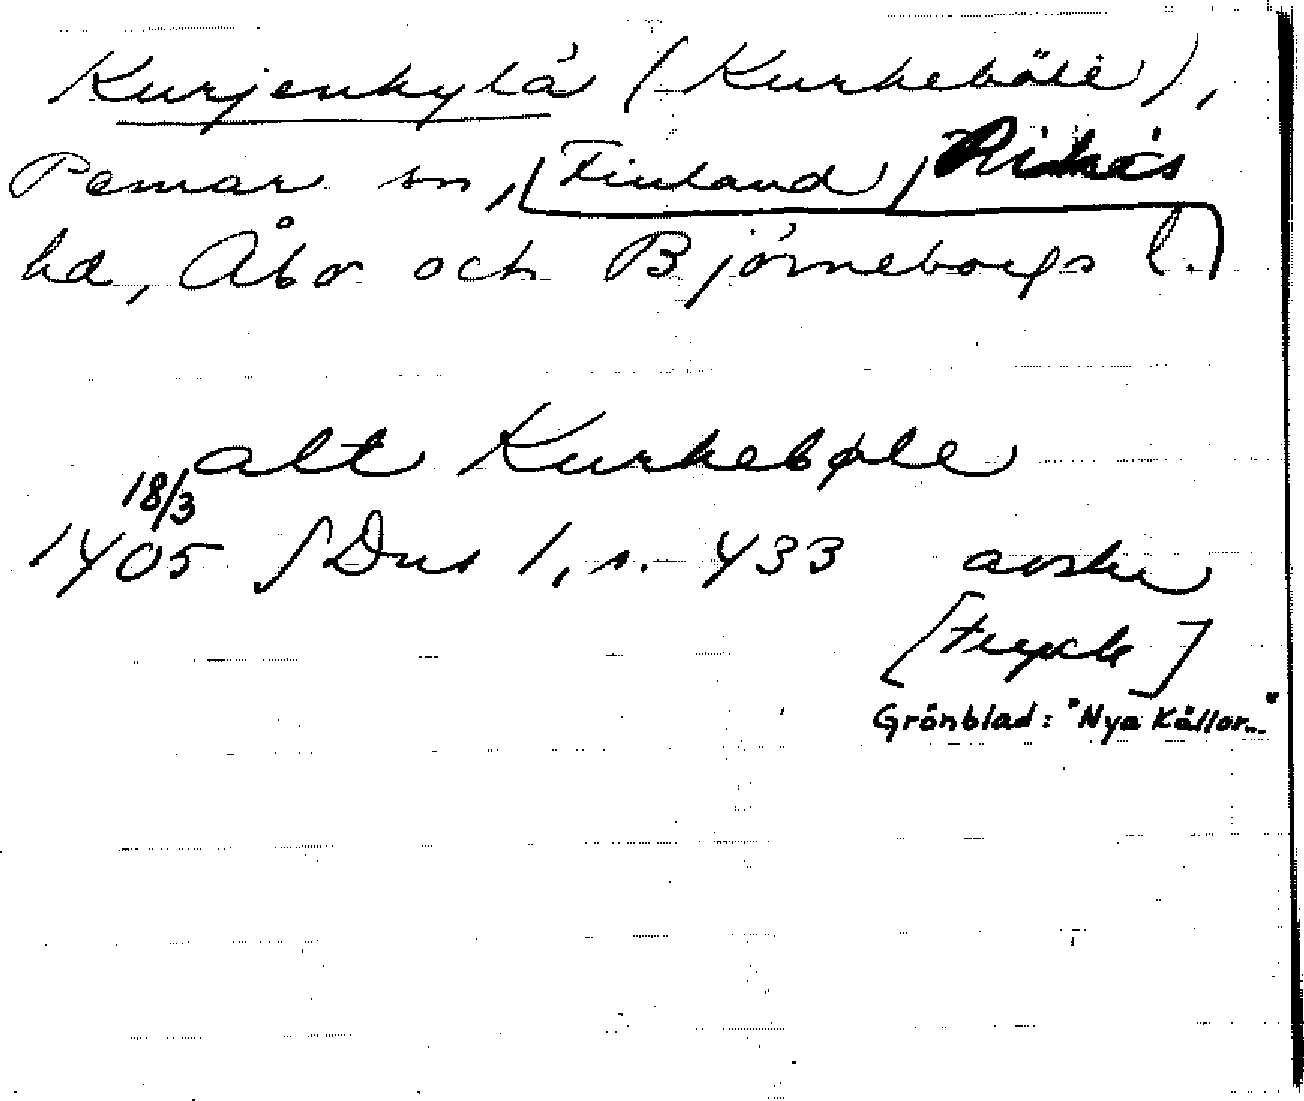 Kurjenkylä (Kurkeböle),
Pemar sn, [Finland, Pikis
hd, Åbo och Björneborgs l.]
alt Kurkebøle
18/3
1405 SDns 1, s. 433 avskr
[tryck]
Grönblad: "Nya Källor..."